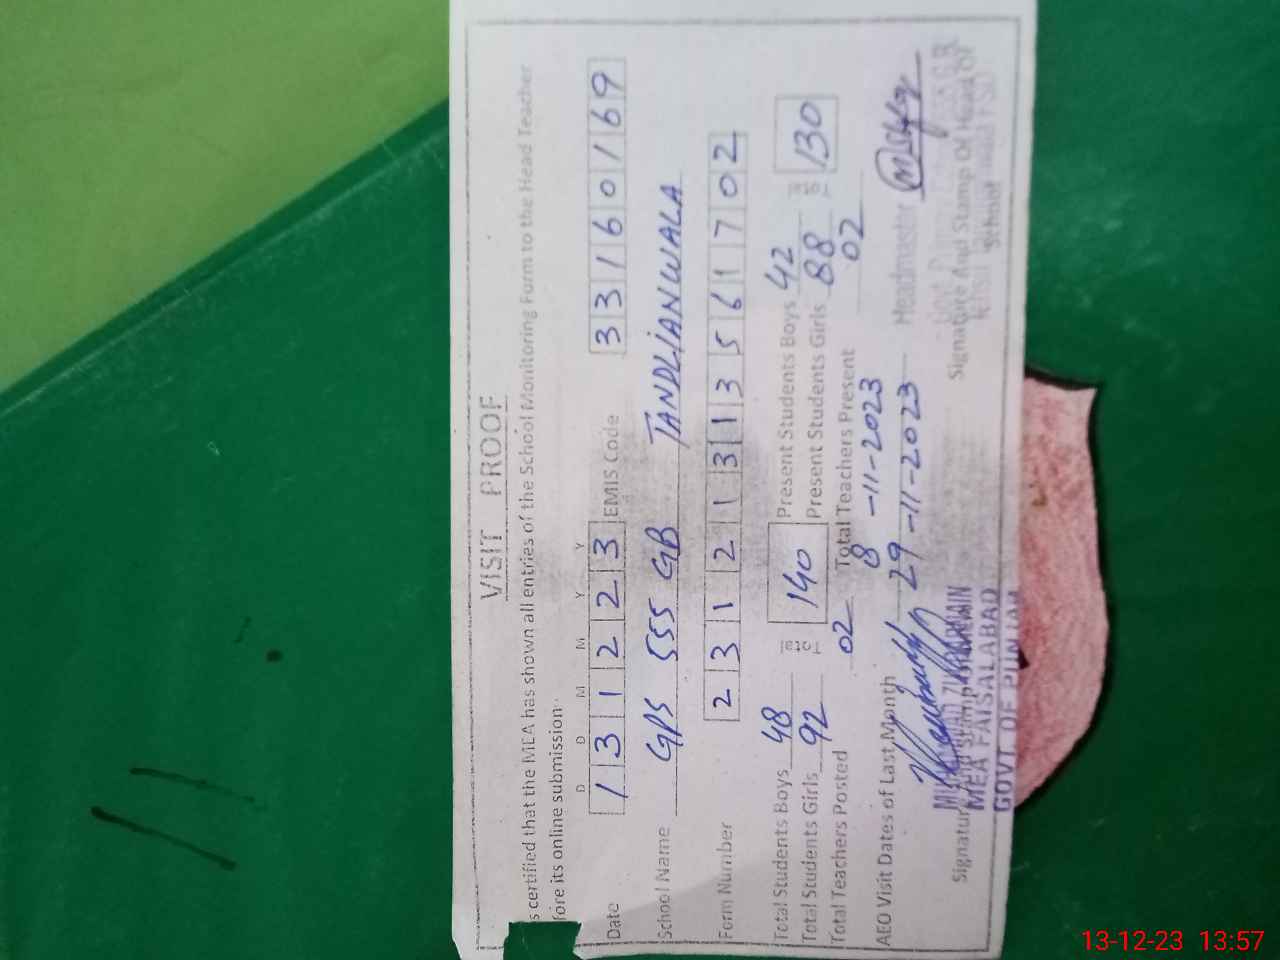 VISIT PROOF
s certified that the MEA has shown all entries of the School Monitoring Form to the Head Teacher
fore its online submission
D D M M Y Y
Date 1 3 1 2 2 3 EMIS Code 3 3 1 6 0 1 6 9
School Name GPS 555 GB TANDLIANWALA
Form Number 2 3 1 2 1 3 1 3 5 6 1 7 0 2
Total Students Boys 48 Total 140 Present Students Boys 42 Total 130
Total Students Girls 92 Present Students Girls 88
Total Teachers Posted 02 Total Teachers Present 02
8-11-2023
AEO Visit Dates of Last Month 29-11-2023 Headmaster
Signature And Stamp Of Head Of
School
MEA FAISALABAD
GOVT OF PUNJAB
13-12-23 13:57